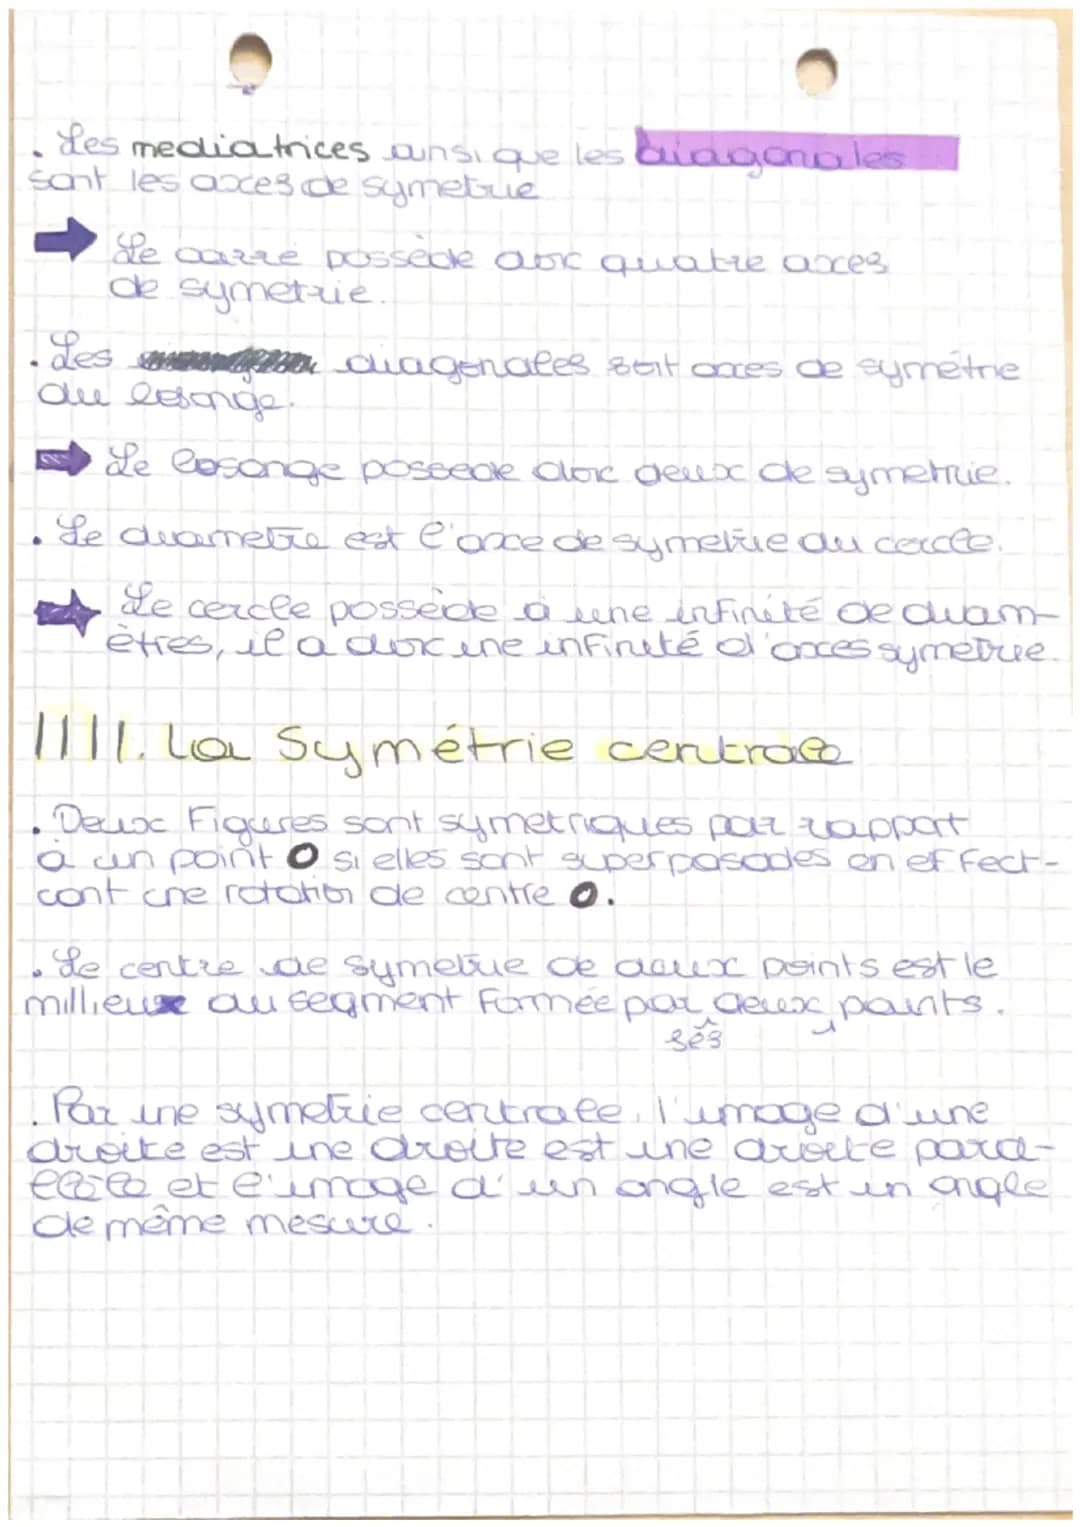 . Les mediatrices ainsi que les diagonales
sont les axes de symetrie
Le carré possède donc quatre axes
de symetrie.
. Les diagonales sont axes de symétrie
du losange.
Le losange possede donc deux de symetrie.
. Le diametre est l'axe de symetrie du cercle.
Le cercle possède à une infinité de diam-
ètres, il a donc une infinité d'axes symetrie.
IIII. La Symétrie centrale
. Deux Figures sont symetriques par rapport
à un point O si elles sont superposades en effect-
cont une rotation de centre O.
. Le centre de symetrie de deux points est le
millieux du segment Formée par deux points.
sés
. Par une symetrie centrale, l'image d'une
droite est une droite est une droite para-
llèle et l'image d'un angle est un angle
de même mesure.